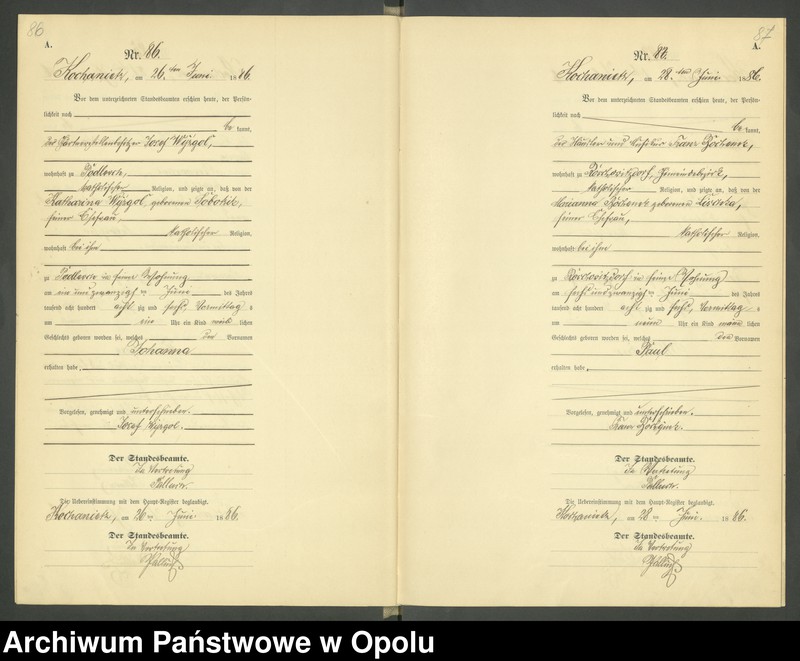 86
A.
Nr. 86.
Kochanietz, am 26. ten Juni 1886
Vor dem unterzeichneten Standesbeamten erschien heute, der Persön-
lichkeit nach
be kannt,
der Gärtnerstellenbesitzer Josef Wyrgol,
wohnhaft zu
katholischer Religion, und zeigte an, daß von der
Katharina Wyrgol geborenen
seiner Ehefrau,
katholischer Religion,
wohnhaft bei ihm
zu in seiner Wohnung
am ein und zwanzigsten Juni des Jahres
tausend acht hundert acht zig und sechs, Vormittag s
um ein Uhr ein Kind weib lichen
Geschlechts geboren worden sei, welches den Vornamen
Johanna
erhalten habe,
Vorgelesen, genehmigt und unterschrieben.
Josef Wyrgol.
Der Standesbeamte.
In Vertretung
Die Uebereinstimmung mit dem Haupt-Register beglaubigt.
Kochanietz, am 26 ten Juni 1886.
Der Standesbeamte.
In Vertretung
87
A.
Nr. 87.
Kochanietz, am 28. ten Juni 1886.
Vor dem unterzeichneten Standesbeamten erschien heute, der Persön-
lichkeit nach
be kannt,
der Häusler und Franz
wohnhaft zu Gemeindebezirk,
katholischer Religion, und zeigte an, daß von der
Marianna geborenen
seiner Ehefrau,
katholischer Religion,
wohnhaft bei ihm
zu in seiner Wohnung
am sechs und zwanzigsten Juni des Jahres
tausend acht hundert acht zig und sechs, Vormittag s
um neun Uhr ein Kind männ lichen
Geschlechts geboren worden sei, welches den Vornamen
Paul
erhalten habe,
Vorgelesen, genehmigt und unterschrieben.
Franz
Der Standesbeamte.
In Vertretung
Die Uebereinstimmung mit dem Haupt-Register beglaubigt.
Kochanietz, am 28 ten Juni 1886.
Der Standesbeamte.
In Vertretung
Archiwum Państwowe w Opolu